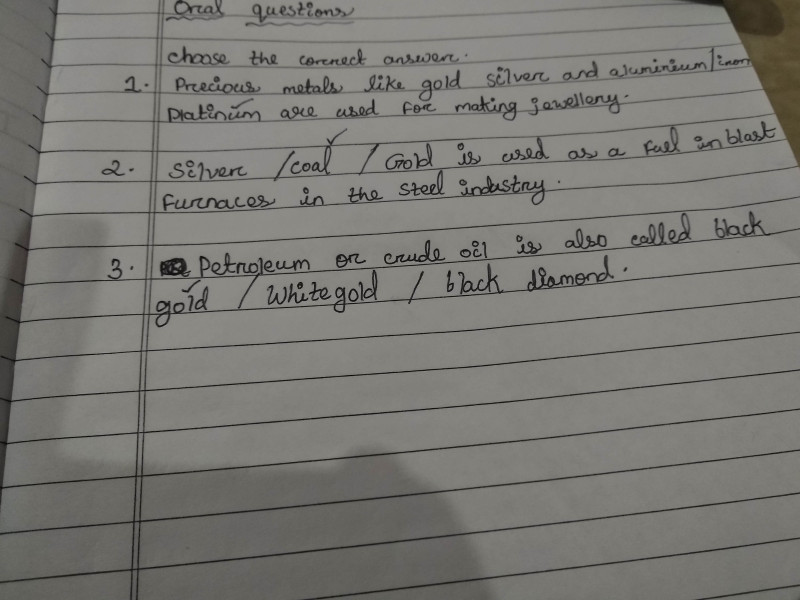 Oral questions
choose the correct answer.
1. Precious metals like gold silver and aluminium/iron
Platinum are used for making jewellery.
2. Silver /coal ✓ / Gold is used as a fuel in blast
Furnaces in the steel industry.
3. Petroleum or crude oil is also called black
gold ✓ / White gold / black diamond.